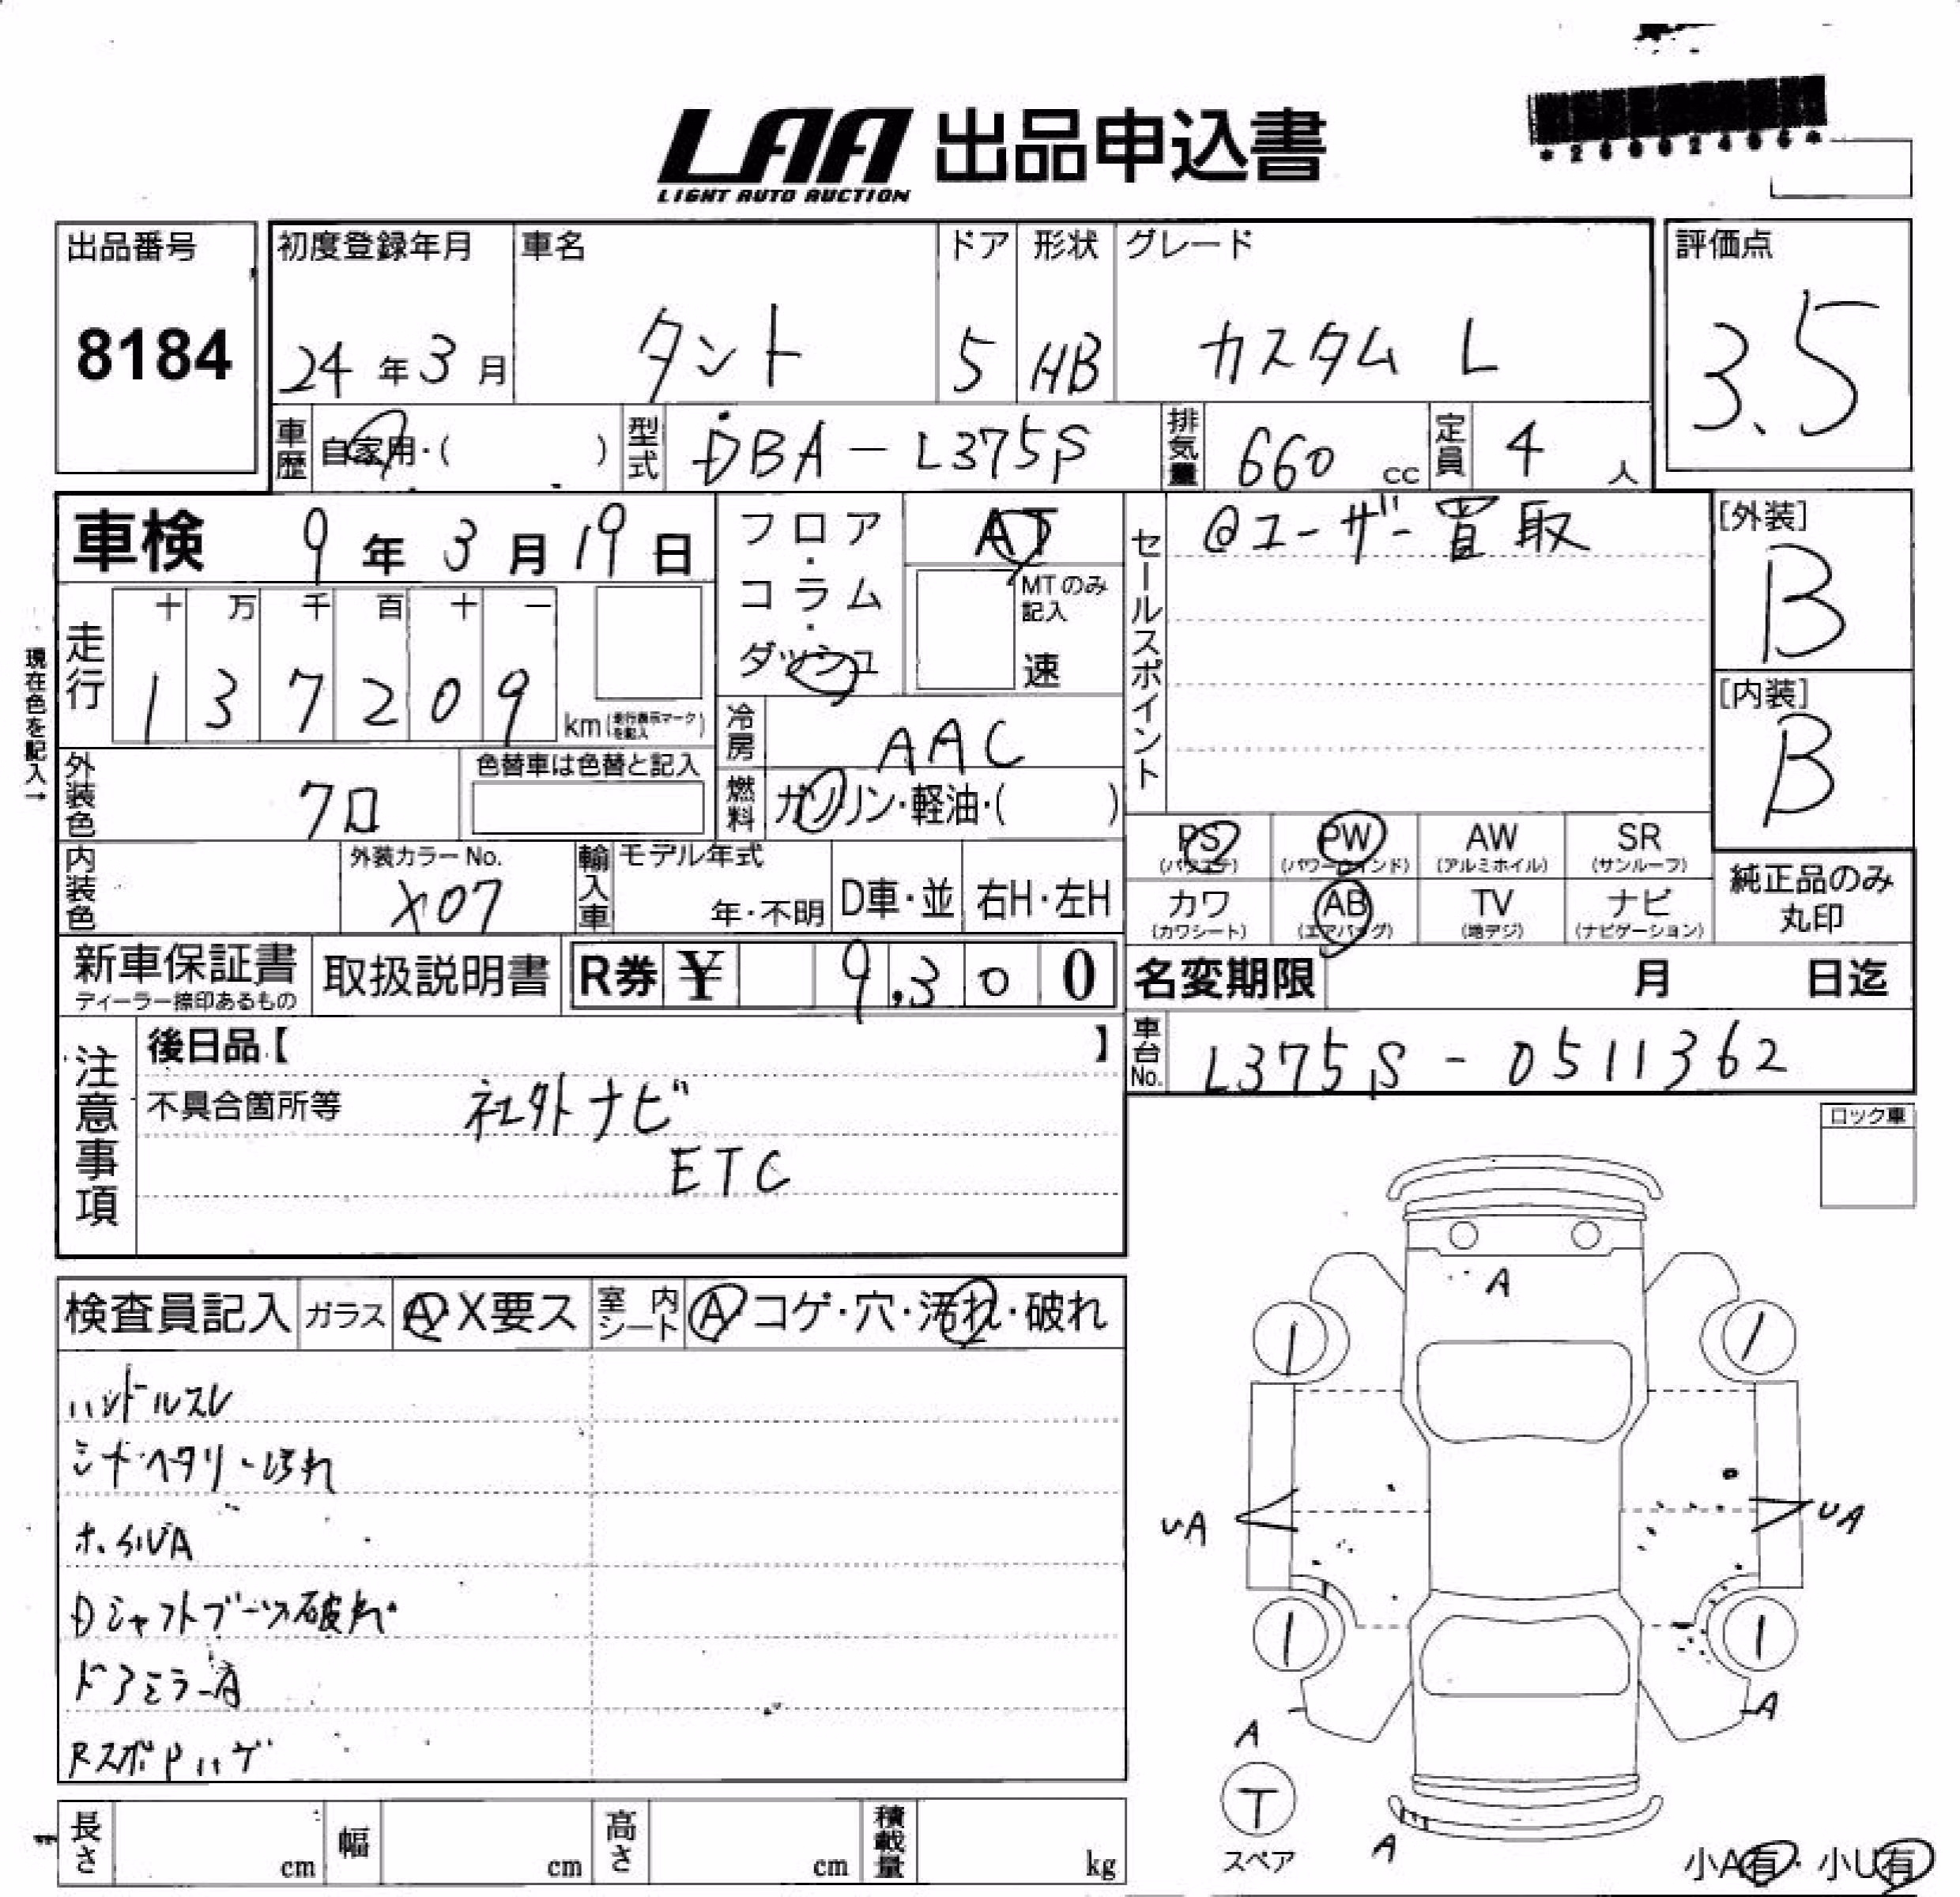 LAA 出品申込書
LIGHT AUTO AUCTION
出品番号
8184
初度登録年月
24年3月
車名
タント
ドア
5
形状
HB
グレード
カスタム L
評価点
3.5
車歴
自家用・( )
型式
DBA-L375S
排気量
660 cc
定員
4 人
車検 9年3月19日
現在色を記入→
走行
十 万 千 百 十 一
1 3 7 2 0 9 km (走行表示マークを記入)
フロア・コラム・ダッシュ
AT
MTのみ記入
速
冷房
AAC
燃料
ガソリン・軽油・( )
外装色
クロ
色替車は色替と記入
内装色
外装カラーNo.
X07
輸入車
モデル年式
年・不明
D車・並
右H・左H
セールスポイント
@ユーザー買取
[外装]
B
[内装]
B
PS (パワステ)
PW (パワーウインド)
AW (アルミホイル)
SR (サンルーフ)
カワ (カワシート)
AB (エアバッグ)
TV (地デジ)
ナビ (ナビゲーション)
純正品のみ丸印
新車保証書
ディーラー捺印あるもの
取扱説明書
R券 ¥ 9,300
名変期限 月 日迄
車台No.
L375S-0511362
注意事項
後日品【 】
不具合箇所等
社外ナビ
ETC
ロック車
検査員記入
ガラス
A・X要ス
室内シート
A コゲ・穴・汚れ・破れ
ハンドルスレ
シートヘタリ・汚れ
ホイルA
Dシャフトブーツ破れ
ドアミラーA
RスポPハゲ
A
UA
UA
A
A
A
T
スペア
小A有・小U有
長さ cm
幅 cm
高さ cm
積載量 kg